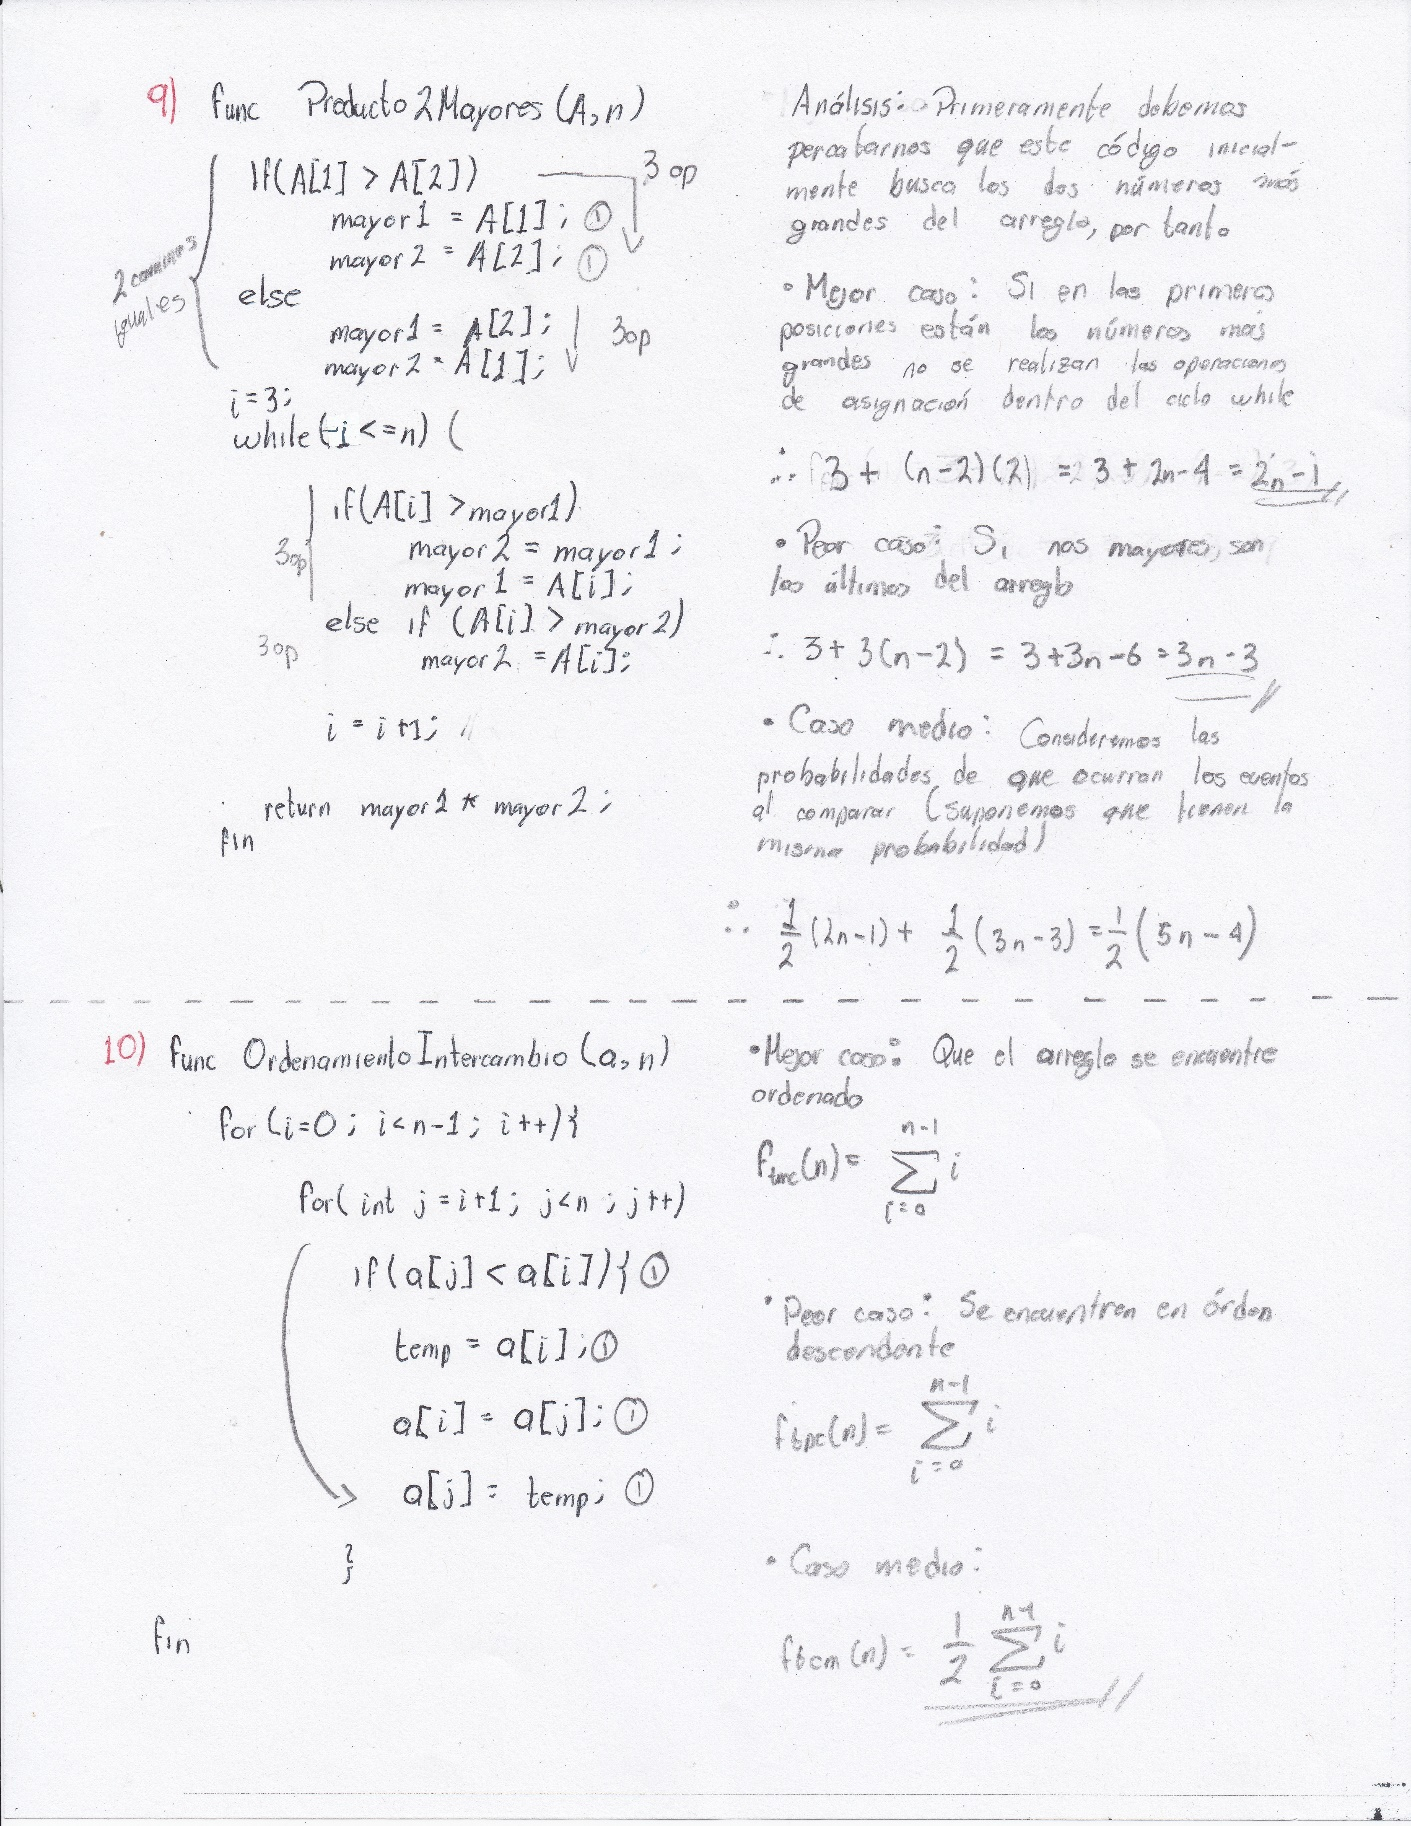 9) func Producto2Mayores(A,n)
if(A[1] > A[2]) 3 op
mayor1 = A[1]; ①
mayor2 = A[2]; ①
2 caminos
iguales
else
mayor1 = A[2];
mayor2 = A[1]; 3op
i=3;
while(i <=n) (
3op
if(A[i] >mayor1)
mayor2 = mayor1;
mayor1 = A[i];
else if (A[i] > mayor2)
3op
mayor2 =A[i];
i = i+1;
return mayor1 * mayor2;
fin
Análisis: Primeramente debemos
percatarnos que este código inicial-
mente busca los dos números más
grandes del arreglo, por tanto
• Mejor caso: Si en las primeras
posiciones están los números más
grandes no se realizan las operaciones
de asignación dentro del ciclo while
∴ 3 + (n-2)(2) = 3 + 2n-4 = 2n-1
• Peor caso: Si nos mayores, son
los últimos del arreglo
∴ 3+3(n-2) = 3+3n-6 = 3n-3
• Caso medio: Consideremos las
probabilidades de que ocurran los eventos
al comparar (suponemos que tienen la
misma probabilidad)
∴ 1/2 (2n-1) + 1/2 (3n-3) = 1/2 (5n-4)
10) func OrdenamientoIntercambio(a,n)
for(i=0; i<n-1; i++){
for(int j=i+1; j<n; j++)
if(a[j] < a[i]){ ①
temp = a[i]; ①
a[i] = a[j]; ①
a[j] = temp; ①
}
fin
• Mejor caso: Que el arreglo se encuentre
ordenado
n-1
(n) = Σ i
i=0
• Peor caso: Se encuentren en órden
descendente
n-1
ftpc(n) = Σ i
i=0
• Caso medio:
n-1
ftcm(n) = 1/2 Σ i
i=0